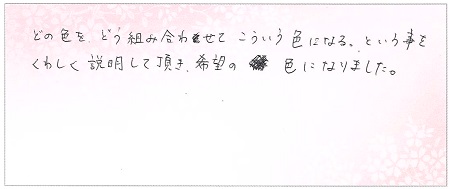 どの色を、どう組み合わせて こういう色になる、という事を
くわしく説明して頂き、希望の 色になりました。